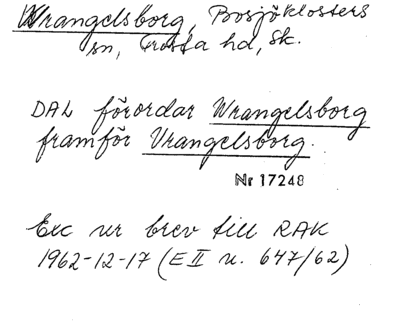 Wrangelsborg, Bosjöklosters
sn, Frosta hd, Sk.
DAL förordar Wrangelsborg
framför Vrangelsborg.
Nr 17248
Exc ur brev till RAK
1962-12-17 (E II n. 647/62)